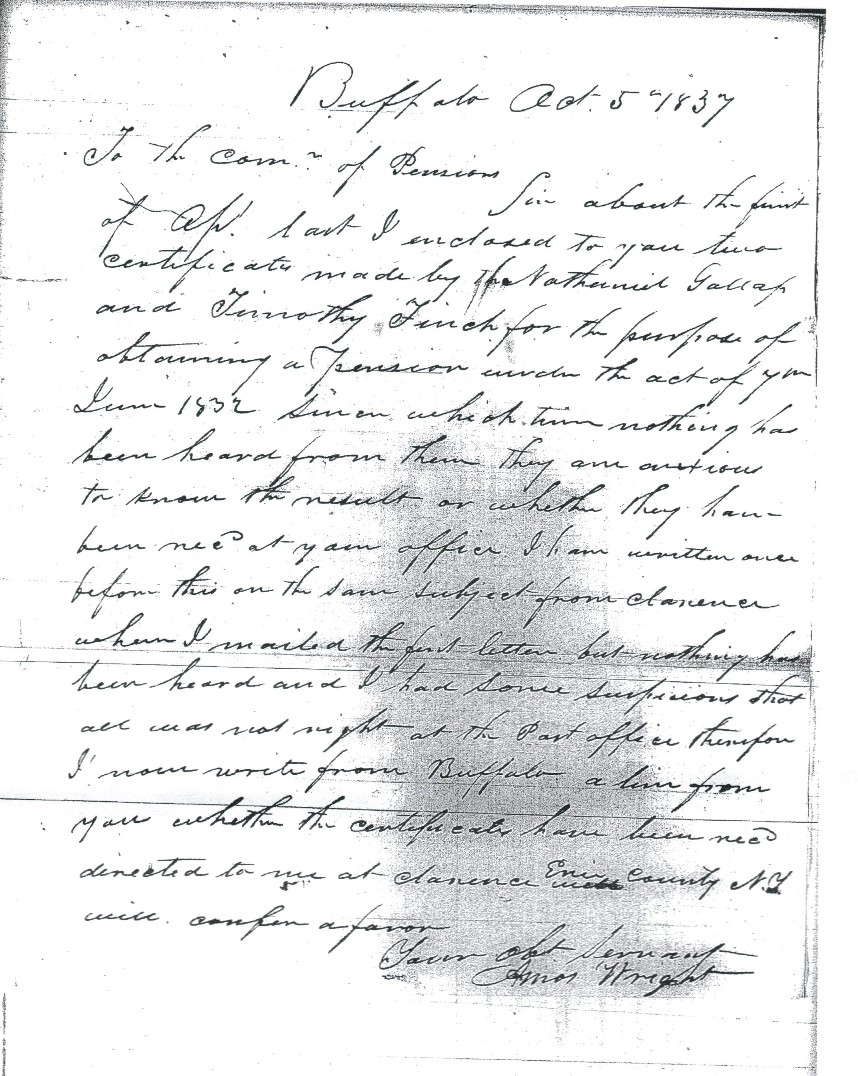 Buffalo Oct. 5th 1837
To the Comr. of Pensions
Sir about the first
of Apl. last I enclosed to you two
certificates made by Nathaniel Gallap
and Timothy Finch for the purpose of
obtaining a pension under the act of 7th
June 1832 since which time nothing has
been heard from them they are anxious
to know the result or whether they have
been recd at your office. I have written once
before this on the same subject from Clarence
where I mailed the first letter but nothing has
been heard and I had some suspicions that
all was not right at the Post office therefore
I now write from Buffalo a line from
you whether the certificates have been recd
directed to me at Clarence Erie County N.Y
will confer a favor
Your obt Servant
Amos Wright